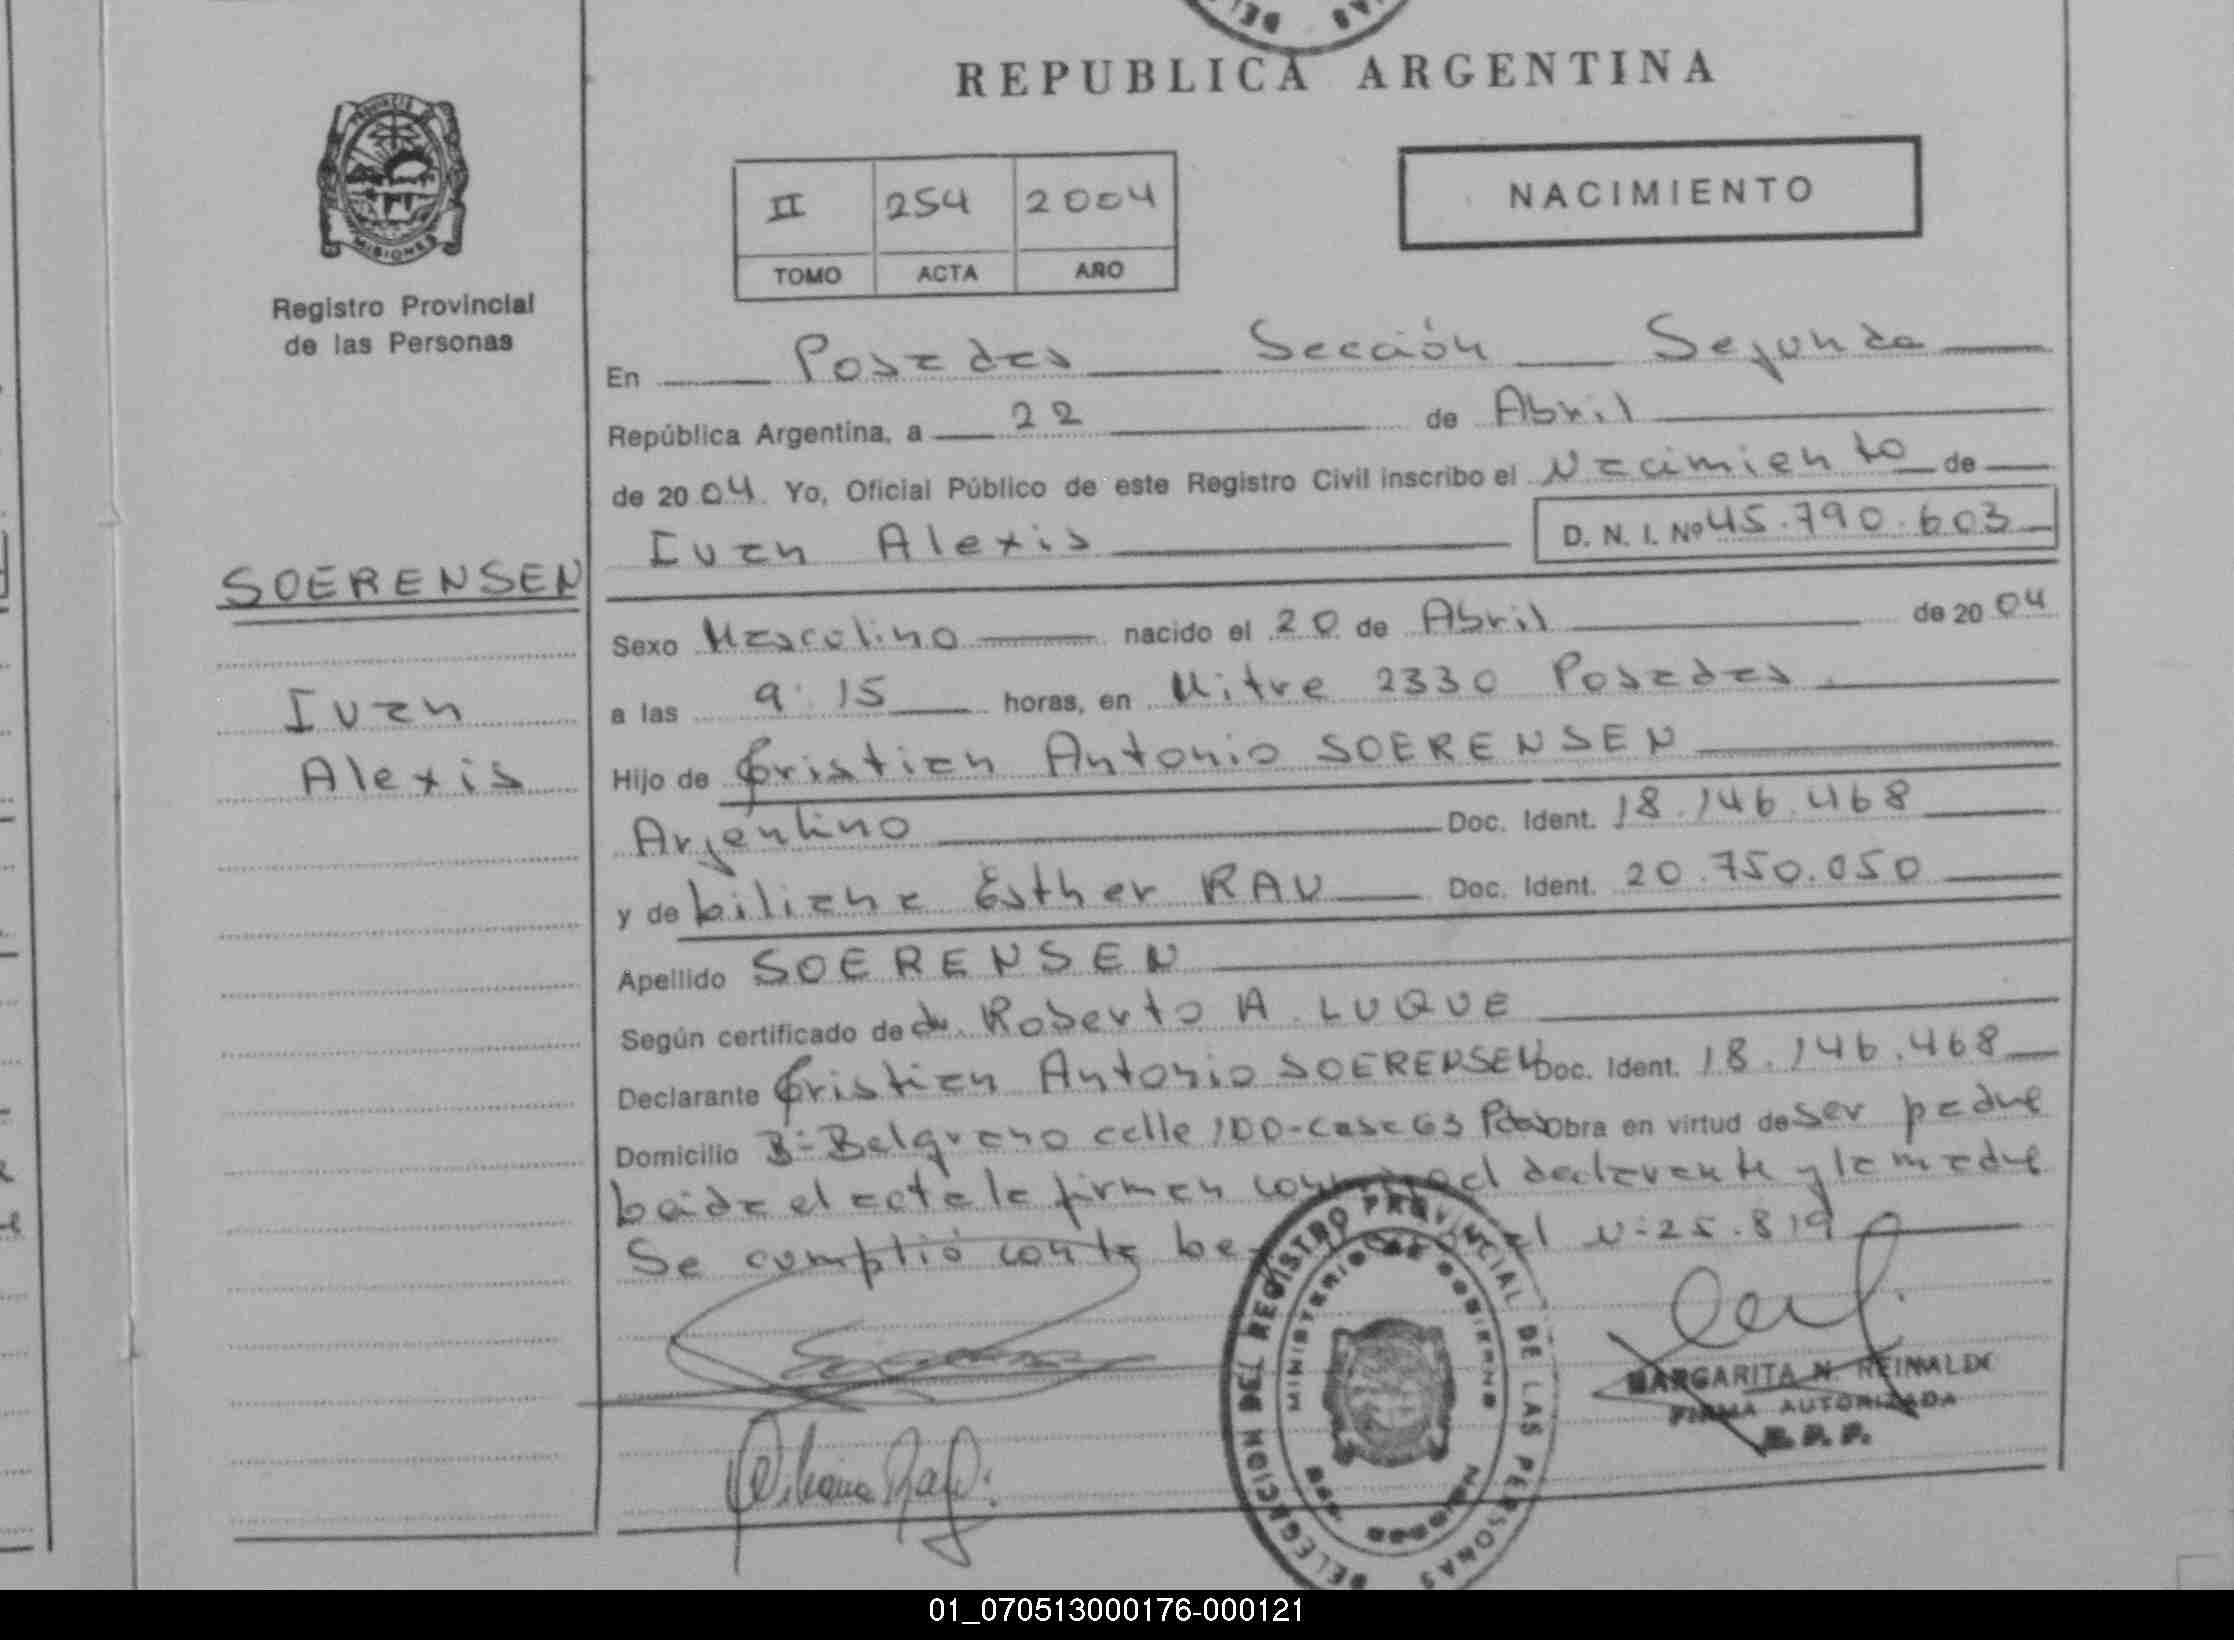 REPUBLICA ARGENTINA
PROVINCIA
MISIONES
Registro Provincial
de las Personas
II 254 2004
TOMO ACTA AÑO
NACIMIENTO
En Posadas Sección Segunda
República Argentina, a 22 de Abril
de 2004 Yo, Oficial Público de este Registro Civil inscribo el Nacimiento de
Ivan Alexis D. N. I. Nº 45.790.603
SOERENSEN
Ivan
Alexis
Sexo Masculino nacido el 20 de Abril de 2004
a las 9:15 horas, en Mitre 2330 Posadas
Hijo de Cristian Antonio SOERENSEN
Argentino Doc. Ident. 18.146.468
y de Liliana Esther RAU Doc. Ident. 20.750.050
Apellido SOERENSEN
Según certificado de dr. Roberto A. LUQUE
Declarante Cristian Antonio SOERENSEN Doc. Ident. 18.146.468
Domicilio Bº Belgrano calle 100-casa 63 Pdas Obra en virtud de ser padre
Leida el acta la firman conmigo el declarante y la madre
Se cumplió con la Nº 25.819
DELEGACION DEL REGISTRO PROVINCIAL DE LAS PERSONAS
MINISTERIO DE GOBIERNO
MISIONES
MARGARITA N. REINALDI
FIRMA AUTORIZADA
R.P.P.
01_070513000176-000121